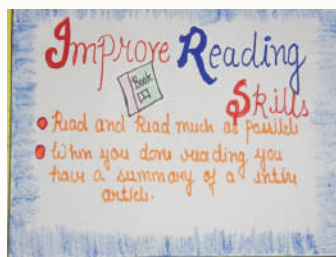 Improve Reading
Book
Skills
Read and Read much as possible
When you done reading you
have a summary of a intire
article.